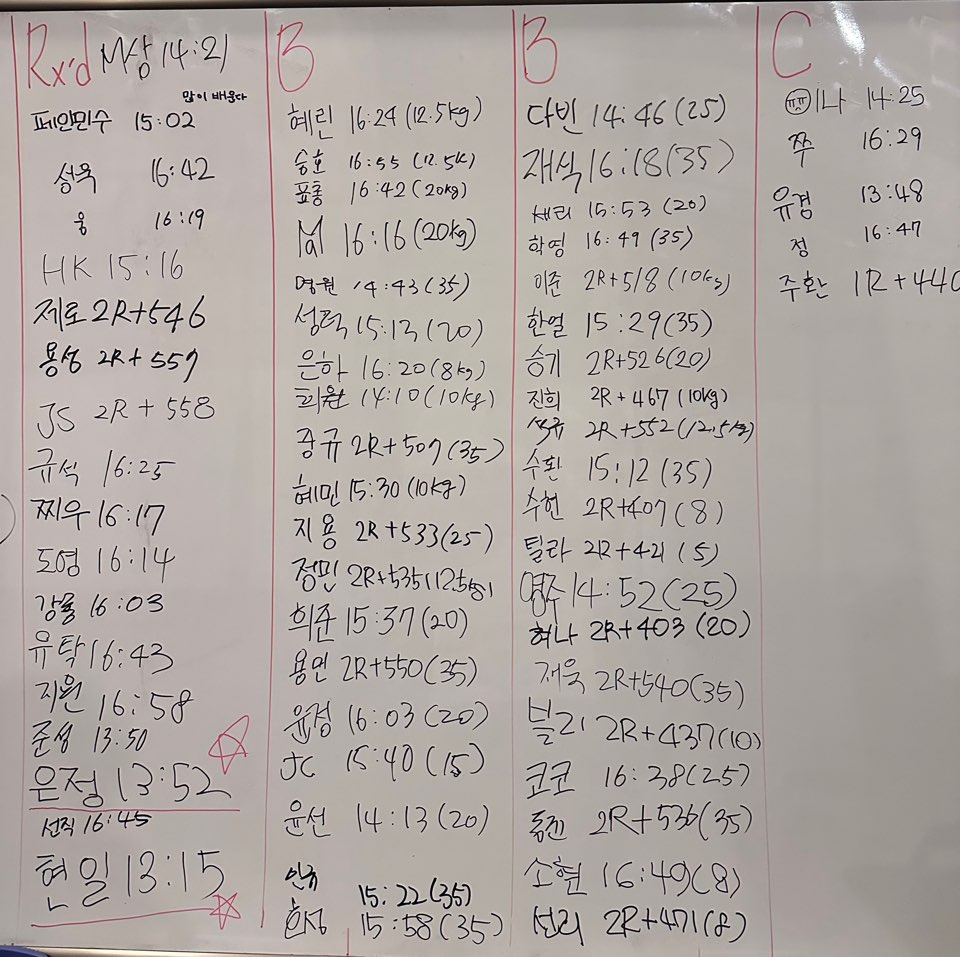 Rx'd
M상 14:21
많이 배운다
페인민수 15:02
성욱 16:42
웅 16:19
HK 15:16
제로 2R+546
용성 2R+557
JS 2R+558
규석 16:25
찌우 16:17
도영 16:14
강룡 16:03
유탁 16:43
지원 16:58
준성 13:50
은정 13:52
선직 16:45
현일 13:15
B
혜린 16:24 (12.5kg)
승호 16:55 (12.5K)
표통 16:42 (20kg)
16:16 (20kg)
명원 14:43 (35)
성덕 15:13 (20)
은하 16:20 (8kg)
희원 14:10 (10kg)
중규 2R+507 (35)
혜민 15:30 (10kg)
지용 2R+533 (25)
정민 2R+535 (12.5kg)
희준 15:37 (20)
용민 2R+550 (35)
윤경 16:03 (20)
JC 15:40 (15)
윤선 14:13 (20)
인규 15:22 (35)
환성 15:58 (35)
B
다빈 14:46 (25)
재식 16:18 (35)
세리 15:53 (20)
학영 16:49 (35)
이준 2R+518 (10kg)
한열 15:29 (35)
승기 2R+526 (20)
진희 2R+467 (10kg)
2R+552 (12.5kg)
수환 15:12 (35)
수현 2R+407 (8)
틸라 2R+421 (5)
영주 14:52 (25)
허나 2R+403 (20)
재욱 2R+540 (35)
블리 2R+437 (10)
코코 16:38 (25)
2R+536 (35)
소현 16:49 (8)
선리 2R+471 (8)
C
이나 14:25
쭈 16:29
유경 13:48
정 16:47
주환 1R+440